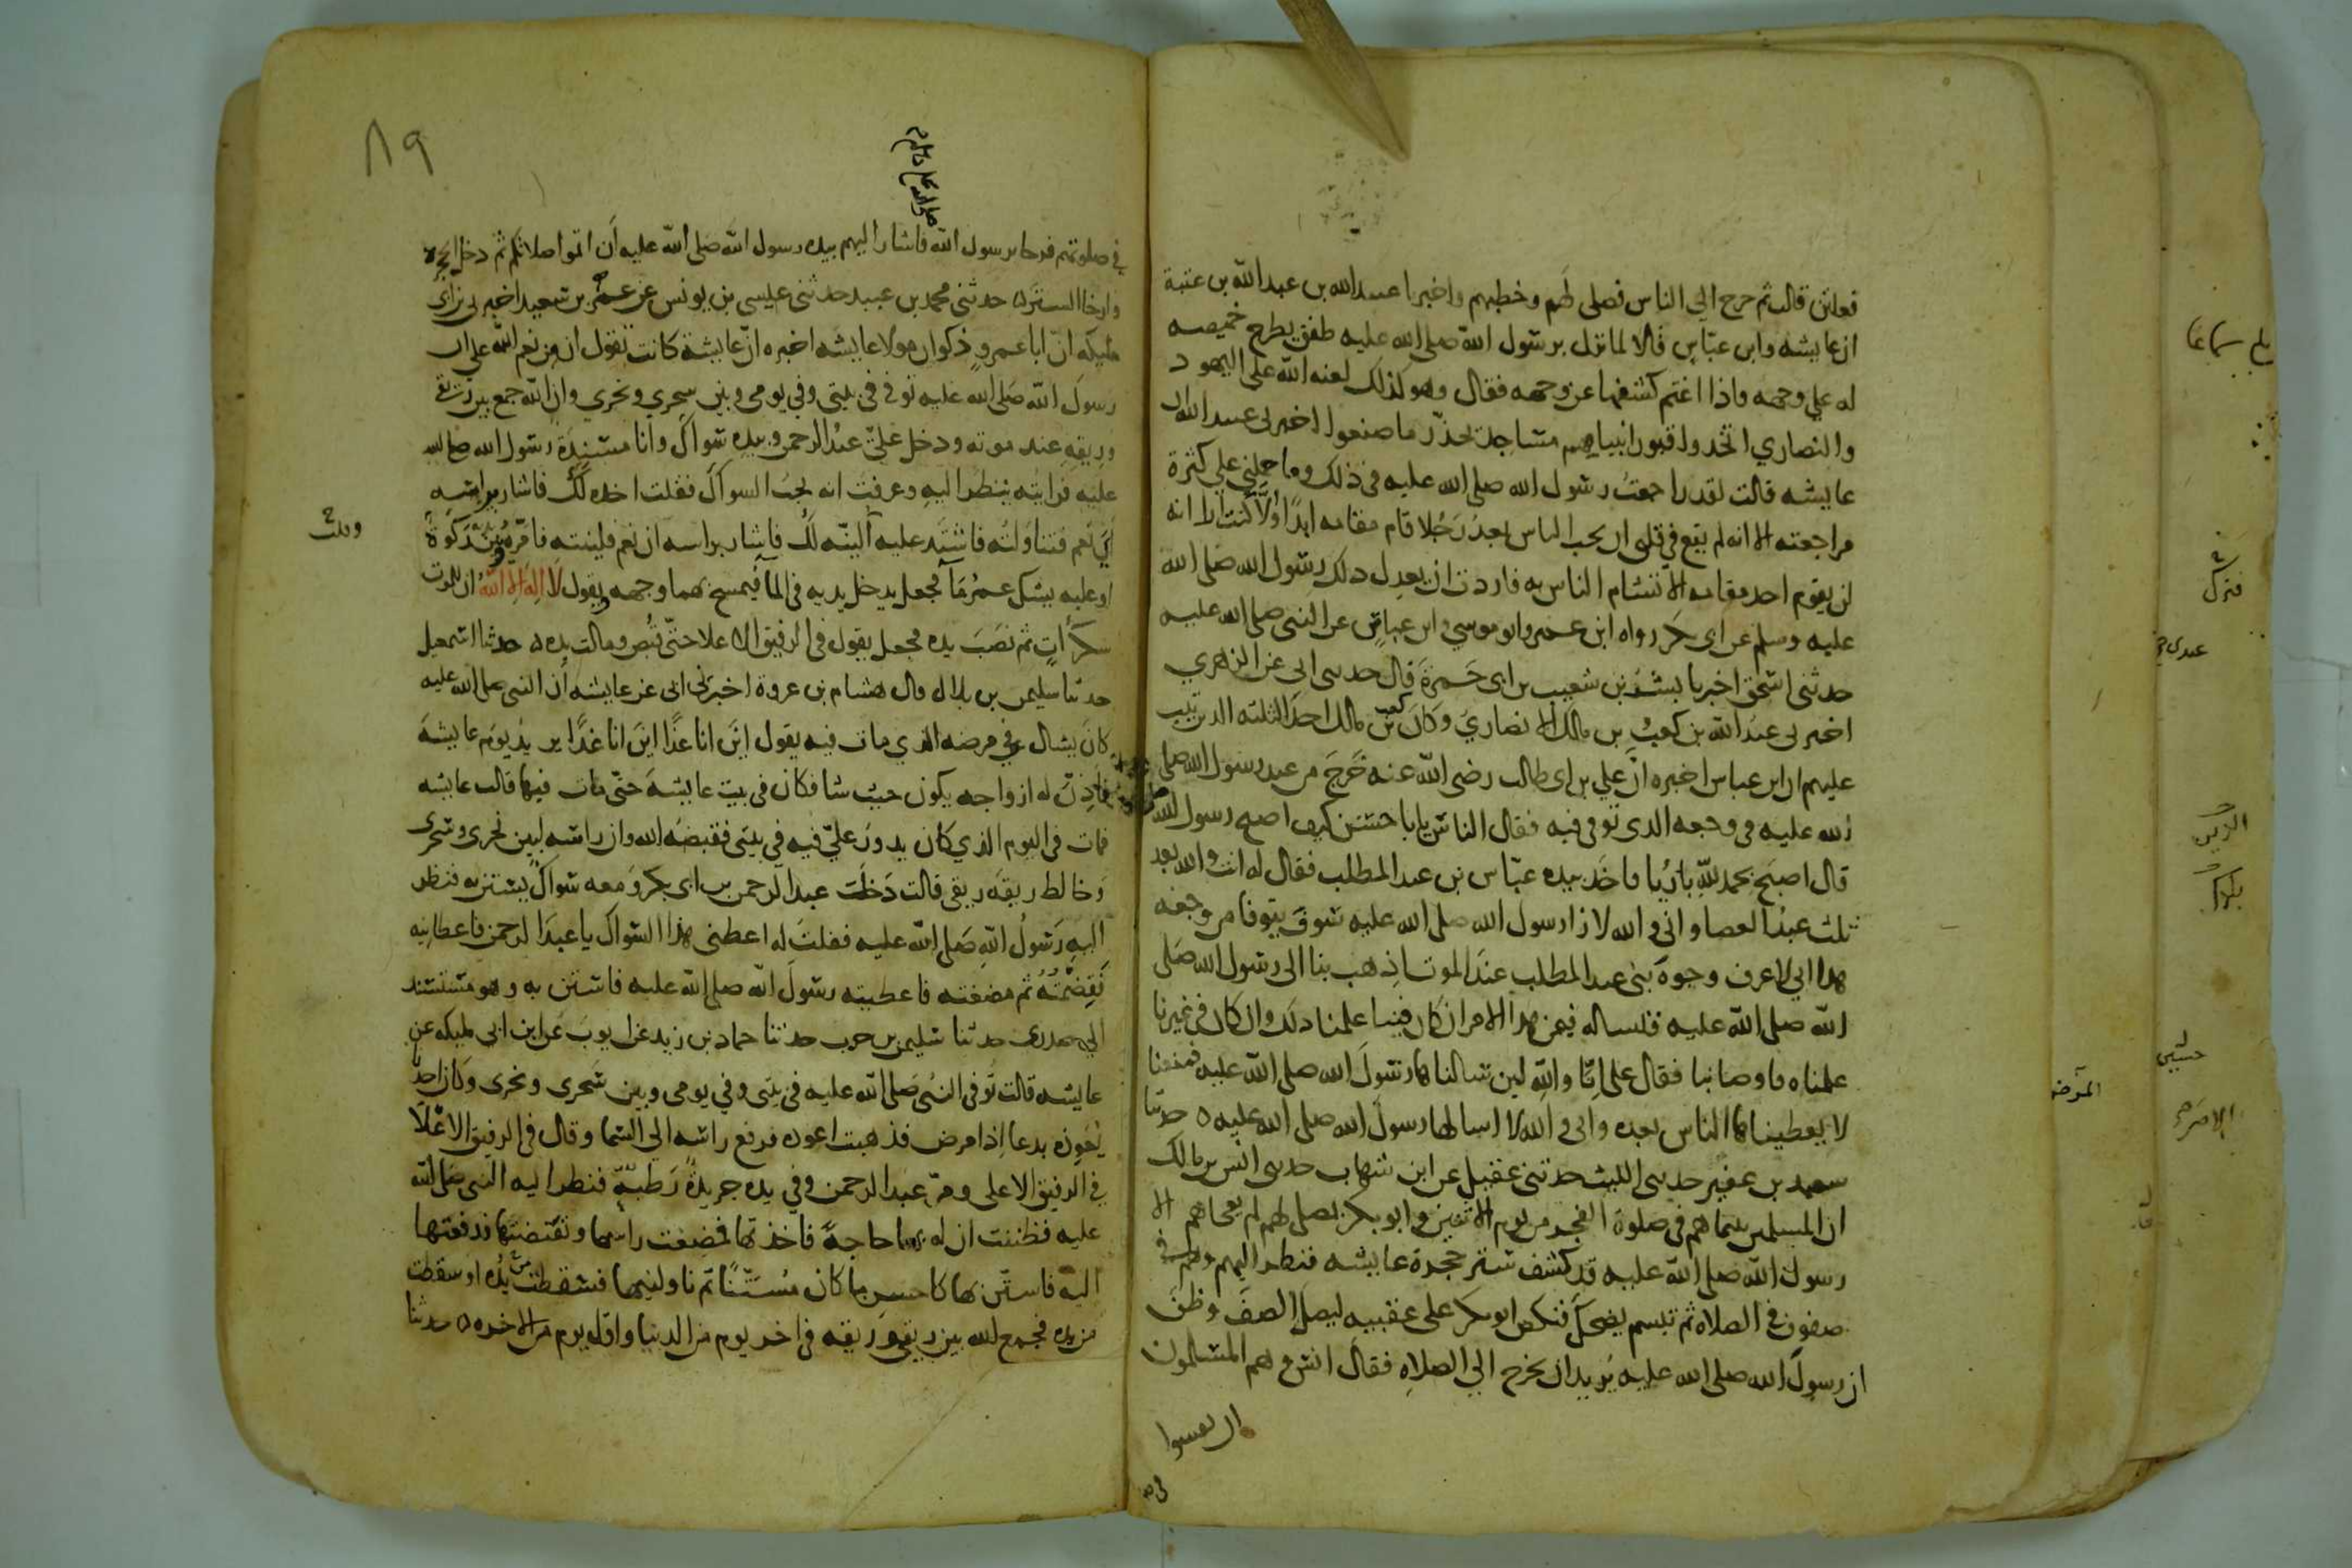 فعلتن قالت ثم خرج الي الناس فصلى لهم وخطبهم واخبرنا عبيد الله بن عبد الله بن عتبة
ان عايشه وابن عباس قالا لما نزل برسول الله صلى الله عليه طفق يطرح خميصه
له علي وجهه فاذا اغتم كشفها عن وجهه فقال وهو كذلك لعنه الله على اليهود
والنصاري اتخذوا قبور انبيايهم مساجد يحذر ما صنعوا اخبرني عبيد الله ان
عايشه قالت لقد راجعت رسول الله صلى الله عليه في ذلك وما حملني علي كثرة
مراجعته الا انه لم يقع في قلبي ان يحب الناس بعده رجلا قام مقامه ابدا ولا كنت ارا انه
لن يقوم احد مقامه الا تشام الناس به فاردت ان يعدل ذلك رسول الله صلى الله
عليه وسلم عن ابي بكر رواه ابن عمر وابو موسي وابن عباس عن النبي صلى الله عليه
حدثني اسحق اخبرنا بشر بن شعيب بن ابي حمزة قال حدثني ابي عن الزهري
اخبرني عبد الله بن كعب بن مالك الانصاري وكان كعب بن مالك احد الثلثه الذين تيب
عليهم ان ابن عباس اخبره ان علي بن ابي طالب رضي الله عنه خرج من عند رسول الله صلى
الله عليه في وجعه الذي توفي فيه فقال الناس يابا حسن كيف اصبح رسول الله
قال اصبح بحمد لله باريا فاخذ بيده عباس بن عبد المطلب فقال له انت والله بعد
ثلث عبد العصا واني والله لارا رسول الله صلى الله عليه سوف يتوفا من وجعه
هذا اني لاعرف وجوه بني عبد المطلب عند الموت اذهب بنا الى رسول الله صلى
الله صلى الله عليه فلنساله فيمن هذا الامر ان كان فينا علمنا ذلك وان كان في غيرنا
علمناه فاوصا بنا فقال علي انا والله لين سالناها رسول الله صلى الله عليه فمنعنا
لا يعطيناها الناس بعده واني والله لا اسالها رسول الله صلى الله عليه ه حدثنا
سعيد بن عفير حدثني الليث حدثني عقيل عن ابن شهاب حدثني انس بن مالك
ان المسلمين بينما هم في صلوة الفجر من يوم الاثنين وابو بكر يصلي لهم لم يفجاهم الا
رسول الله صلى الله عليه قد كشف ستر حجرة عايشه فنظر اليهم وهم في
صفوف في الصلاه ثم تبسم يضحك فنكص ابو بكر على عقبيه ليصل الصف وظن
ان رسول الله صلى الله عليه يريد ان يخرج الي الصلاه فقال انس وهم المسلمون
ان يفتتنوا
٨٩
في صلوتهم فرحا برسول الله فاشار اليهم بيده رسول الله صلى الله عليه ان اتموا صلاتكم ثم دخل الحجره
وارخا الستر ه حدثني محمد بن عبيد حدثني عيسى بن يونس عن عمر بن سعيد اخبرني بن ابي
مليكه ان ابا عمرو ذكوان مولا عايشه اخبره ان عايشة كانت تقول ان من نعم الله علي ان
رسول الله صلى الله عليه توفي في بيتي وفي يومي وبين سحري ونحري وان الله جمع بين ريقي
وريقه عند موته ودخل علي عبد الرحمن وبيده سواك وانا مسندة رسول الله صلى الله
عليه فرايته ينظر اليه وعرفت انه يحب السواك فقلت اخذه لك فاشار براسه
اي نعم فتناولته فاشتد عليه الينه لك فاشار براسه ان نعم فلينته فامره وبين يديه ركوة
او علبه يشك عمر ما فجعل يدخل يديه في الما فيمسح بهما وجهه ويقول لا اله الا الله ان للموت
سكرات ثم نصب يده فجعل يقول في الرفيق الاعلا حتى قبض ومالت يده ه حدثنا اسمعيل
حدثنا سليمن بن بلال قال هشام بن عروة اخبرني ابي عن عايشه ان النبي صلى الله عليه
كان يسال في مرضه الذي مات فيه يقول اين انا غدا اين انا غدا يريد يوم عايشه
فاذن له ازواجه يكون حيث شا فكان في بيت عايشه حتى مات فيها قالت عايشه
فمات في اليوم الذي كان يدور علي فيه في بيتي فقبضه الله وان راسه لبين نحري وسحري
وخالط ريقه ريقي قالت دخلت عبد الرحمن بن ابي بكر ومعه سواك يستن به فنظر
اليه رسول الله صلى الله عليه فقلت له اعطني هذا السواك يا عبد الرحمن فاعطانيه
فقضمته ثم مضغته فاعطيته رسول الله صلى الله عليه فاستن به وهو مستسند
الي صدري حدثنا سليمن بن حرب حدثنا حماد بن زيد عن ايوب عن ابن ابي مليكه عن
عايشه قالت توفي النبي صلى الله عليه في بيتي وفي يومي وبين سحري ونحري وكان احدنا
يعوذه بدعا اذا مرض فذهبت اعوذه فرفع راسه الي السما وقال في الرفيق الاعلا
في الرفيق الاعلى ومر عبد الرحمن وفي يده جريدة رطبة فنظر اليه النبي صلى الله
عليه فظننت ان له بها حاجة فاخذتها فمضغت راسها ونفضتها فدفعتها
اليه فاستن بها كاحسن ما كان مستنا ثم ناولنيها فسقطت يده او سقطت
من يده فجمع الله بين ريقي وريقه في اخر يوم من الدنيا واول يوم من الاخره ه حدثنا